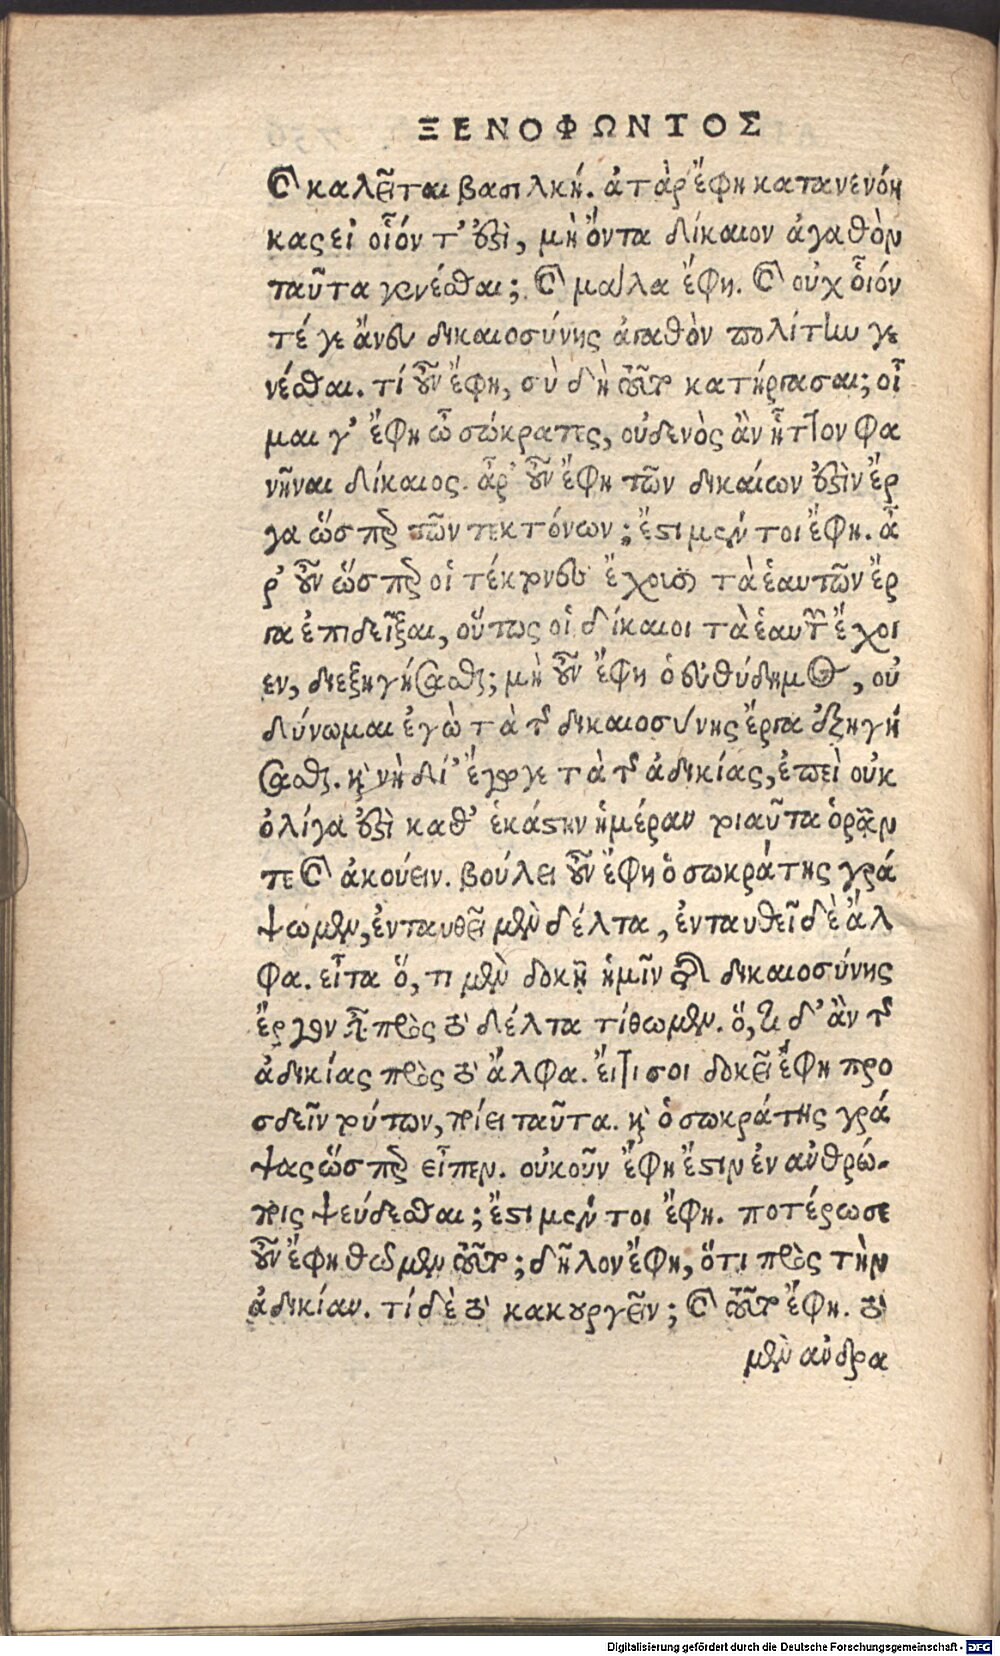 ΞΕΝΟΦΩΝΤΟΣ
καὶ καλεῖται βασιλκή. ἀτὰρ ἔφη κατανενόη
κας εἰ οἷόν τ' ἐστὶ, μὴ ὄντα δίκαιον ἀγαθὸν
ταῦτα γενέσθαι; καὶ μάλα ἔφη. καὶ οὐχ οἷόν
τέ γε ἄνευ δικαιοσύνης ἀγαθὸν πολίτην γε
νέσθαι. τί οὖν ἔφη, σὺ δὴ τοῦτο κατήργασαι; οἶ
μαι γ' ἔφη ὦ σώκρατες, οὐδενὸς ἂν ἧττον φα
νῆναι δίκαιος. ἆρ' οὖν ἔφη τῶν δικαίων ἐστὶν ἔρ
γα ὥσπερ τῶν τεκτόνων; ἔστι μέν τοι ἔφη. ἆ
ρ' οὖν ὥσπερ οἱ τέκτονες ἔχουσι τὰ ἑαυτῶν ἔρ
γα ἐπιδεῖξαι, οὕτως οἱ δίκαιοι τὰ ἑαυτῶν ἔχοι
εν, διεξηγήσασθαι; μὴ οὖν ἔφη ὁ εὐθύδημος, οὐ
δύνωμαι ἐγὼ τὰ τῆς δικαιοσύνης ἔργα ἐξηγή
σασθαι. καὶ νὴ δί' ἔγωγε τὰ τῆς ἀδικίας, ἐπεὶ οὐκ
ὀλίγα ἐστὶ καθ' ἑκάστην ἡμέραν τοιαῦτα ὁρᾶν
τε καὶ ἀκούειν. βούλει οὖν ἔφη ὁ σωκράτης γρά
ψωμεν, ἐνταυθεῖ μὲν δέλτα, ἐνταυθεῖ δὲ ἄλ
φα. εἶτα ὅ, τι μὲν δοκῇ ἡμῖν τῆς δικαιοσύνης
ἔργον εἶναι πρὸς τὸ δέλτα τίθωμεν. ὅ, τι δ' ἂν τῆς
ἀδικίας πρὸς τὸ ἄλφα. εἴ τι σοι δοκεῖ ἔφη προ
σδεῖν τούτων, ποίει ταῦτα. καὶ ὁ σωκράτης γρά
ψας ὥσπερ εἶπεν. οὐκοῦν ἔφη ἔστιν ἐν ἀνθρώ-
ποις ψεύδεσθαι; ἔστι μέν τοι ἔφη. ποτέρωσε
οὖν ἔφη θῶμεν τοῦτο; δῆλον ἔφη, ὅτι πρὸς τὴν
ἀδικίαν. τί δὲ τὸ κακουργεῖν; καὶ τοῦτο ἔφη. τὸ
μὲν ἀνδρα
Digitalisierung gefördert durch die Deutsche Forschungsgemeinschaft - DFG